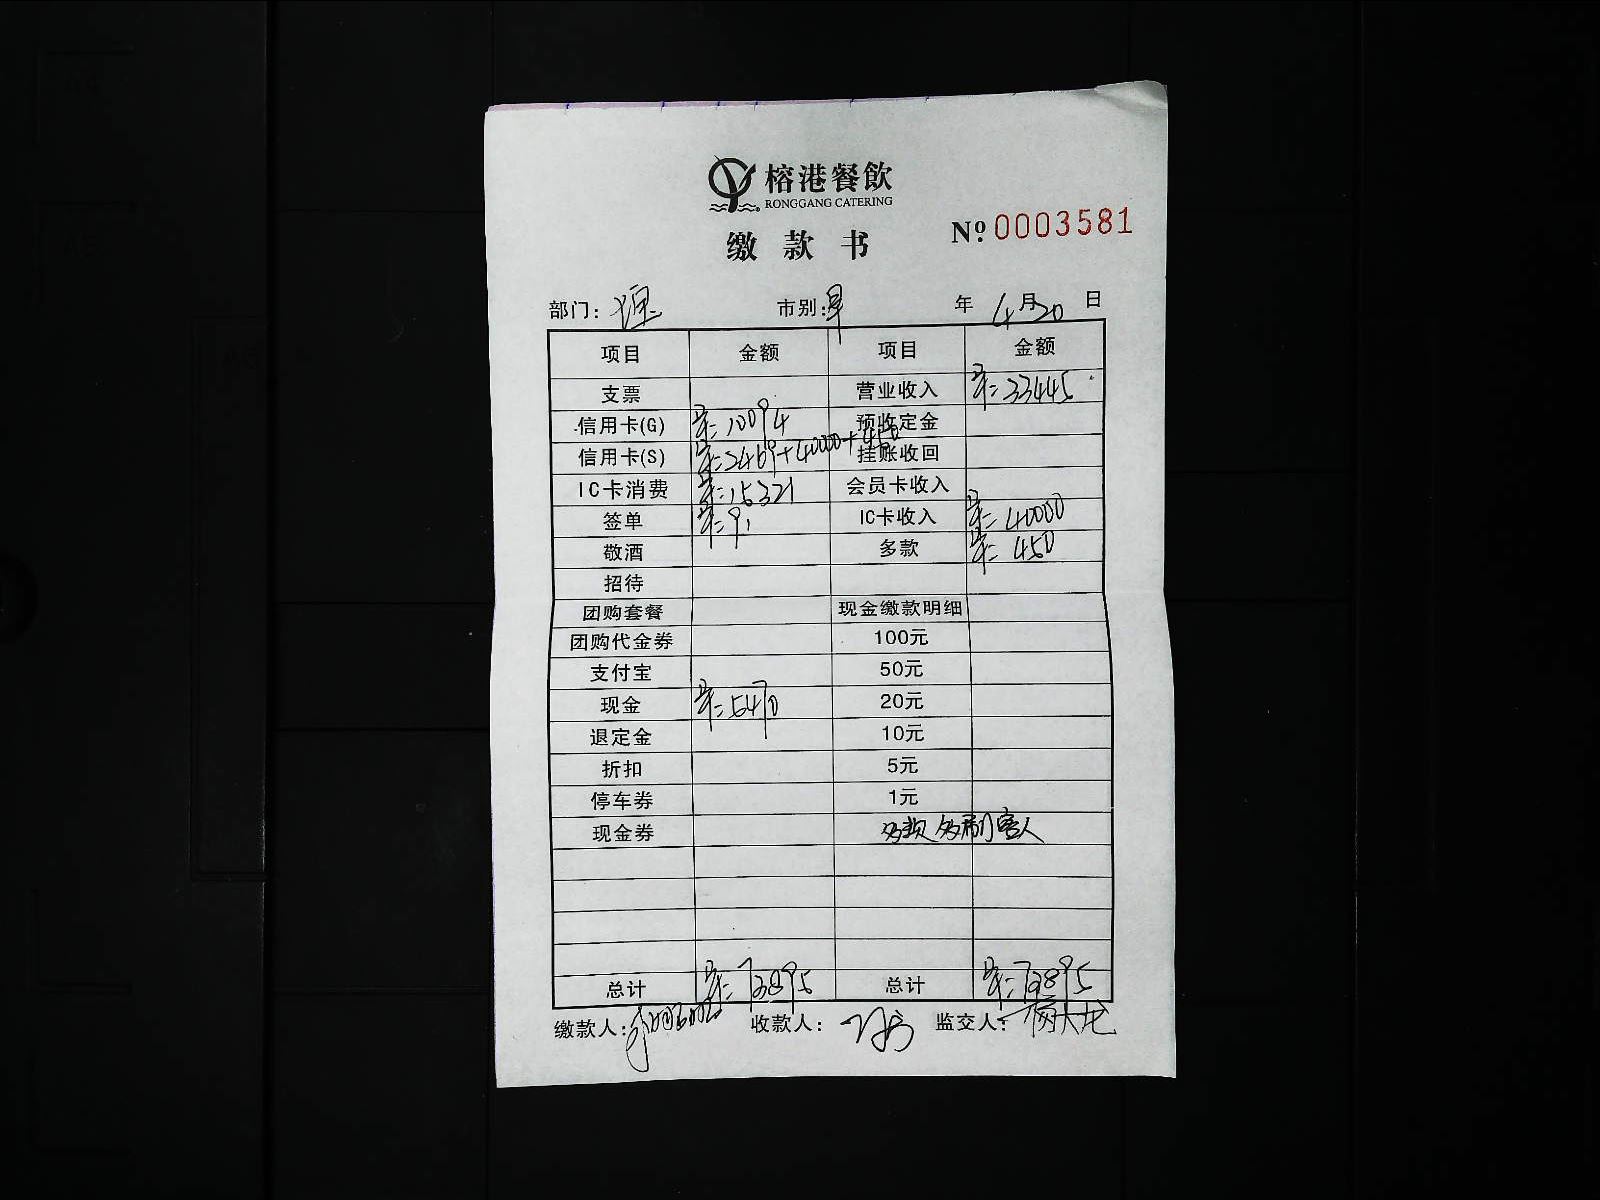 榕港餐飲
RONGGANG CATERING
缴款书
Nº 0003581
部门: 市别: 早 年 4月20日
项目 金额 项目 金额
支票 营业收入 ¥=33445
信用卡(G) ¥=10094 预收定金
信用卡(S) ¥=2469+40000+450 挂账收回
IC卡消费 ¥=15321 会员卡收入
签单 ¥=91 IC卡收入 ¥=40000
敬酒 多款 ¥=450
招待
团购套餐 现金缴款明细
团购代金券 100元
支付宝 50元
现金 ¥=5470 20元
退定金 10元
折扣 5元
停车券 1元
现金券 多款 多刷客人
总计 ¥=73895 总计 ¥=73895
缴款人: 收款人: 监交人: